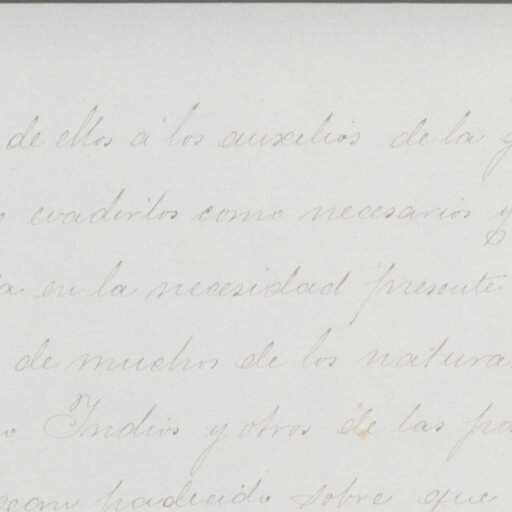 de ellos á los auxilios de la
evadirlos como necesarios
en la necesidad presente
de muchos de los
Indios y otros de las
padecido sobre que